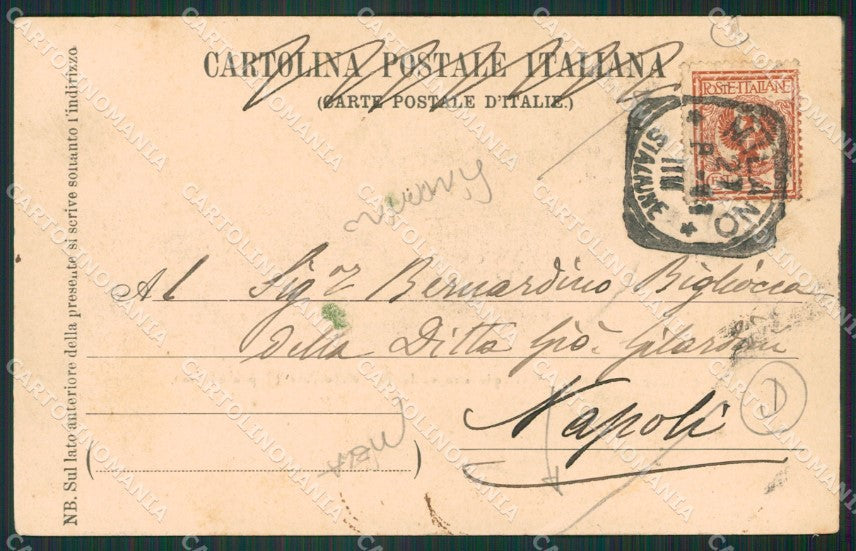 CARTOLINA POSTALE ITALIANA
(CARTE POSTALE D'ITALIE.)
POSTE·ITALIANE
MILANO
STAZIONE
Al Sigr Bernardino Bigliòcca
della Ditta Gio. Gilardoni
Napoli
D
NB. Sul lato anteriore della presente si scrive soltanto l'indirizzo
CARTOLINOMANIA